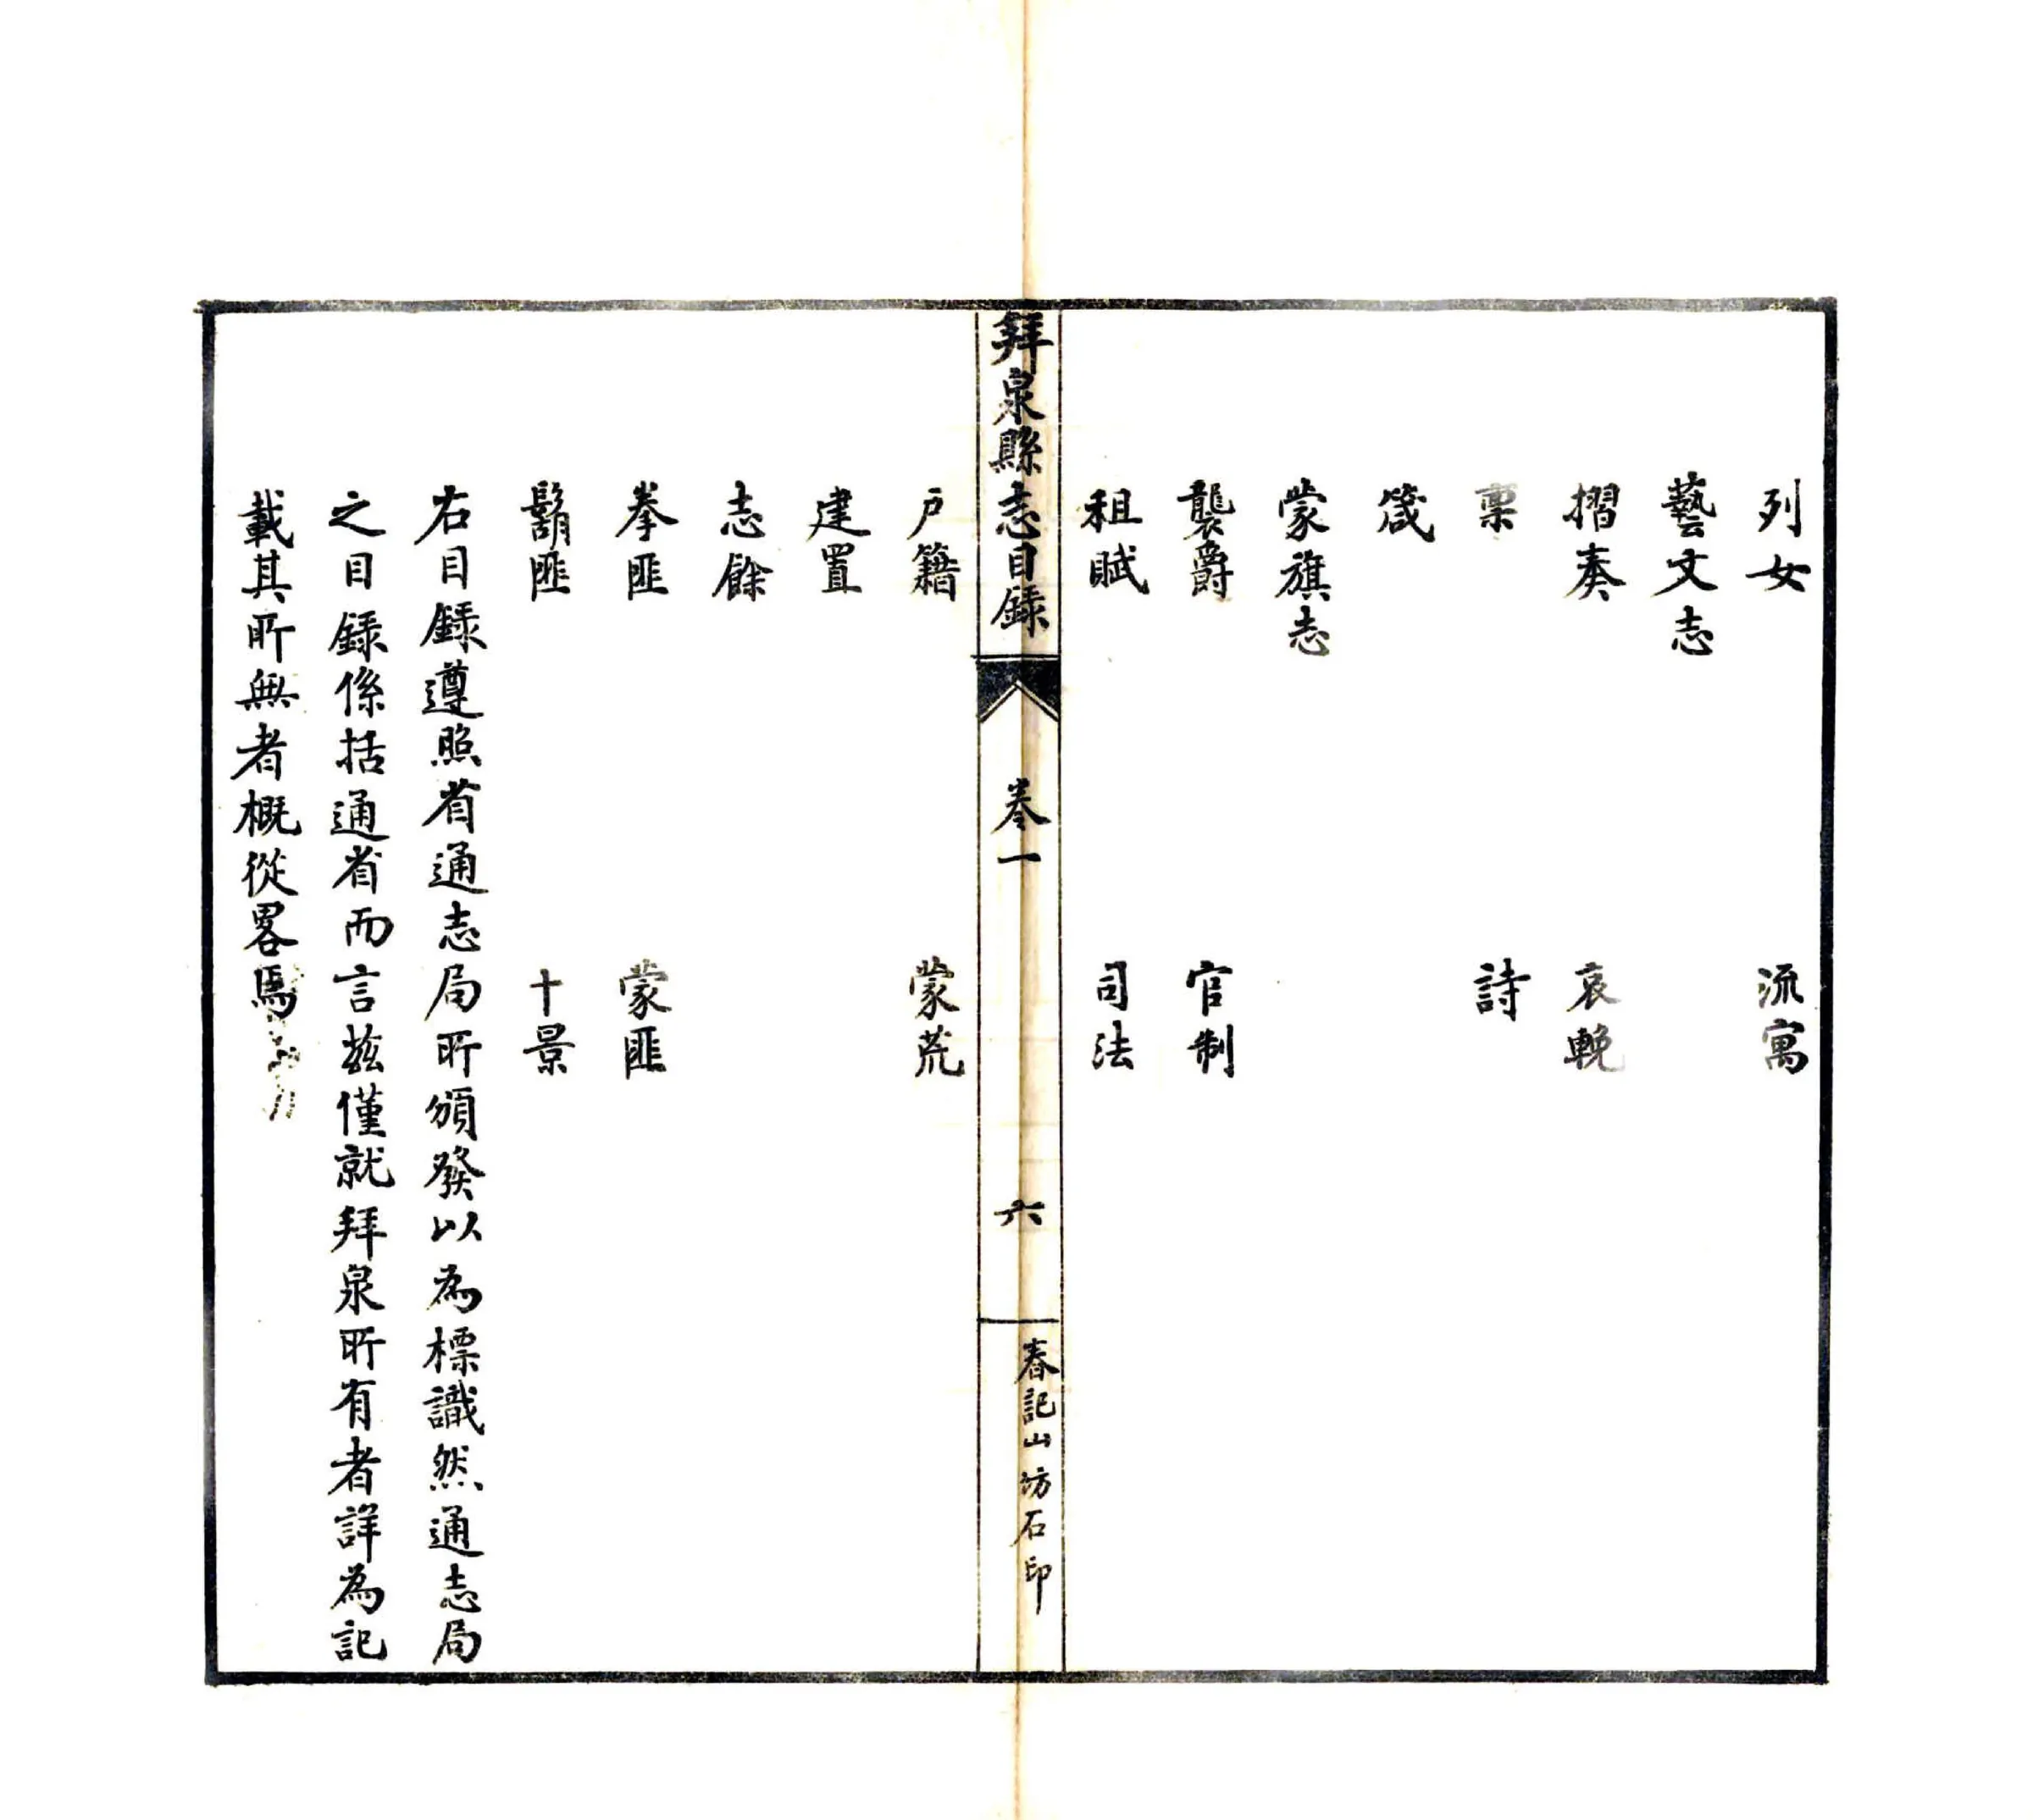 列女　流寓
藝文志
摺奏　哀輓
稟　詩
箴
蒙旗志
襲爵　官制
租賦　司法
拜泉縣志目録　卷一　六　春記山坊石印
戶籍　蒙荒
建置
志餘
拳匪　蒙匪
鬍匪　十景
右目録遵照省通志局所頒發以為標識然通志局
之目録係括通省而言茲僅就拜泉所有者詳為記
載其所無者概從畧焉